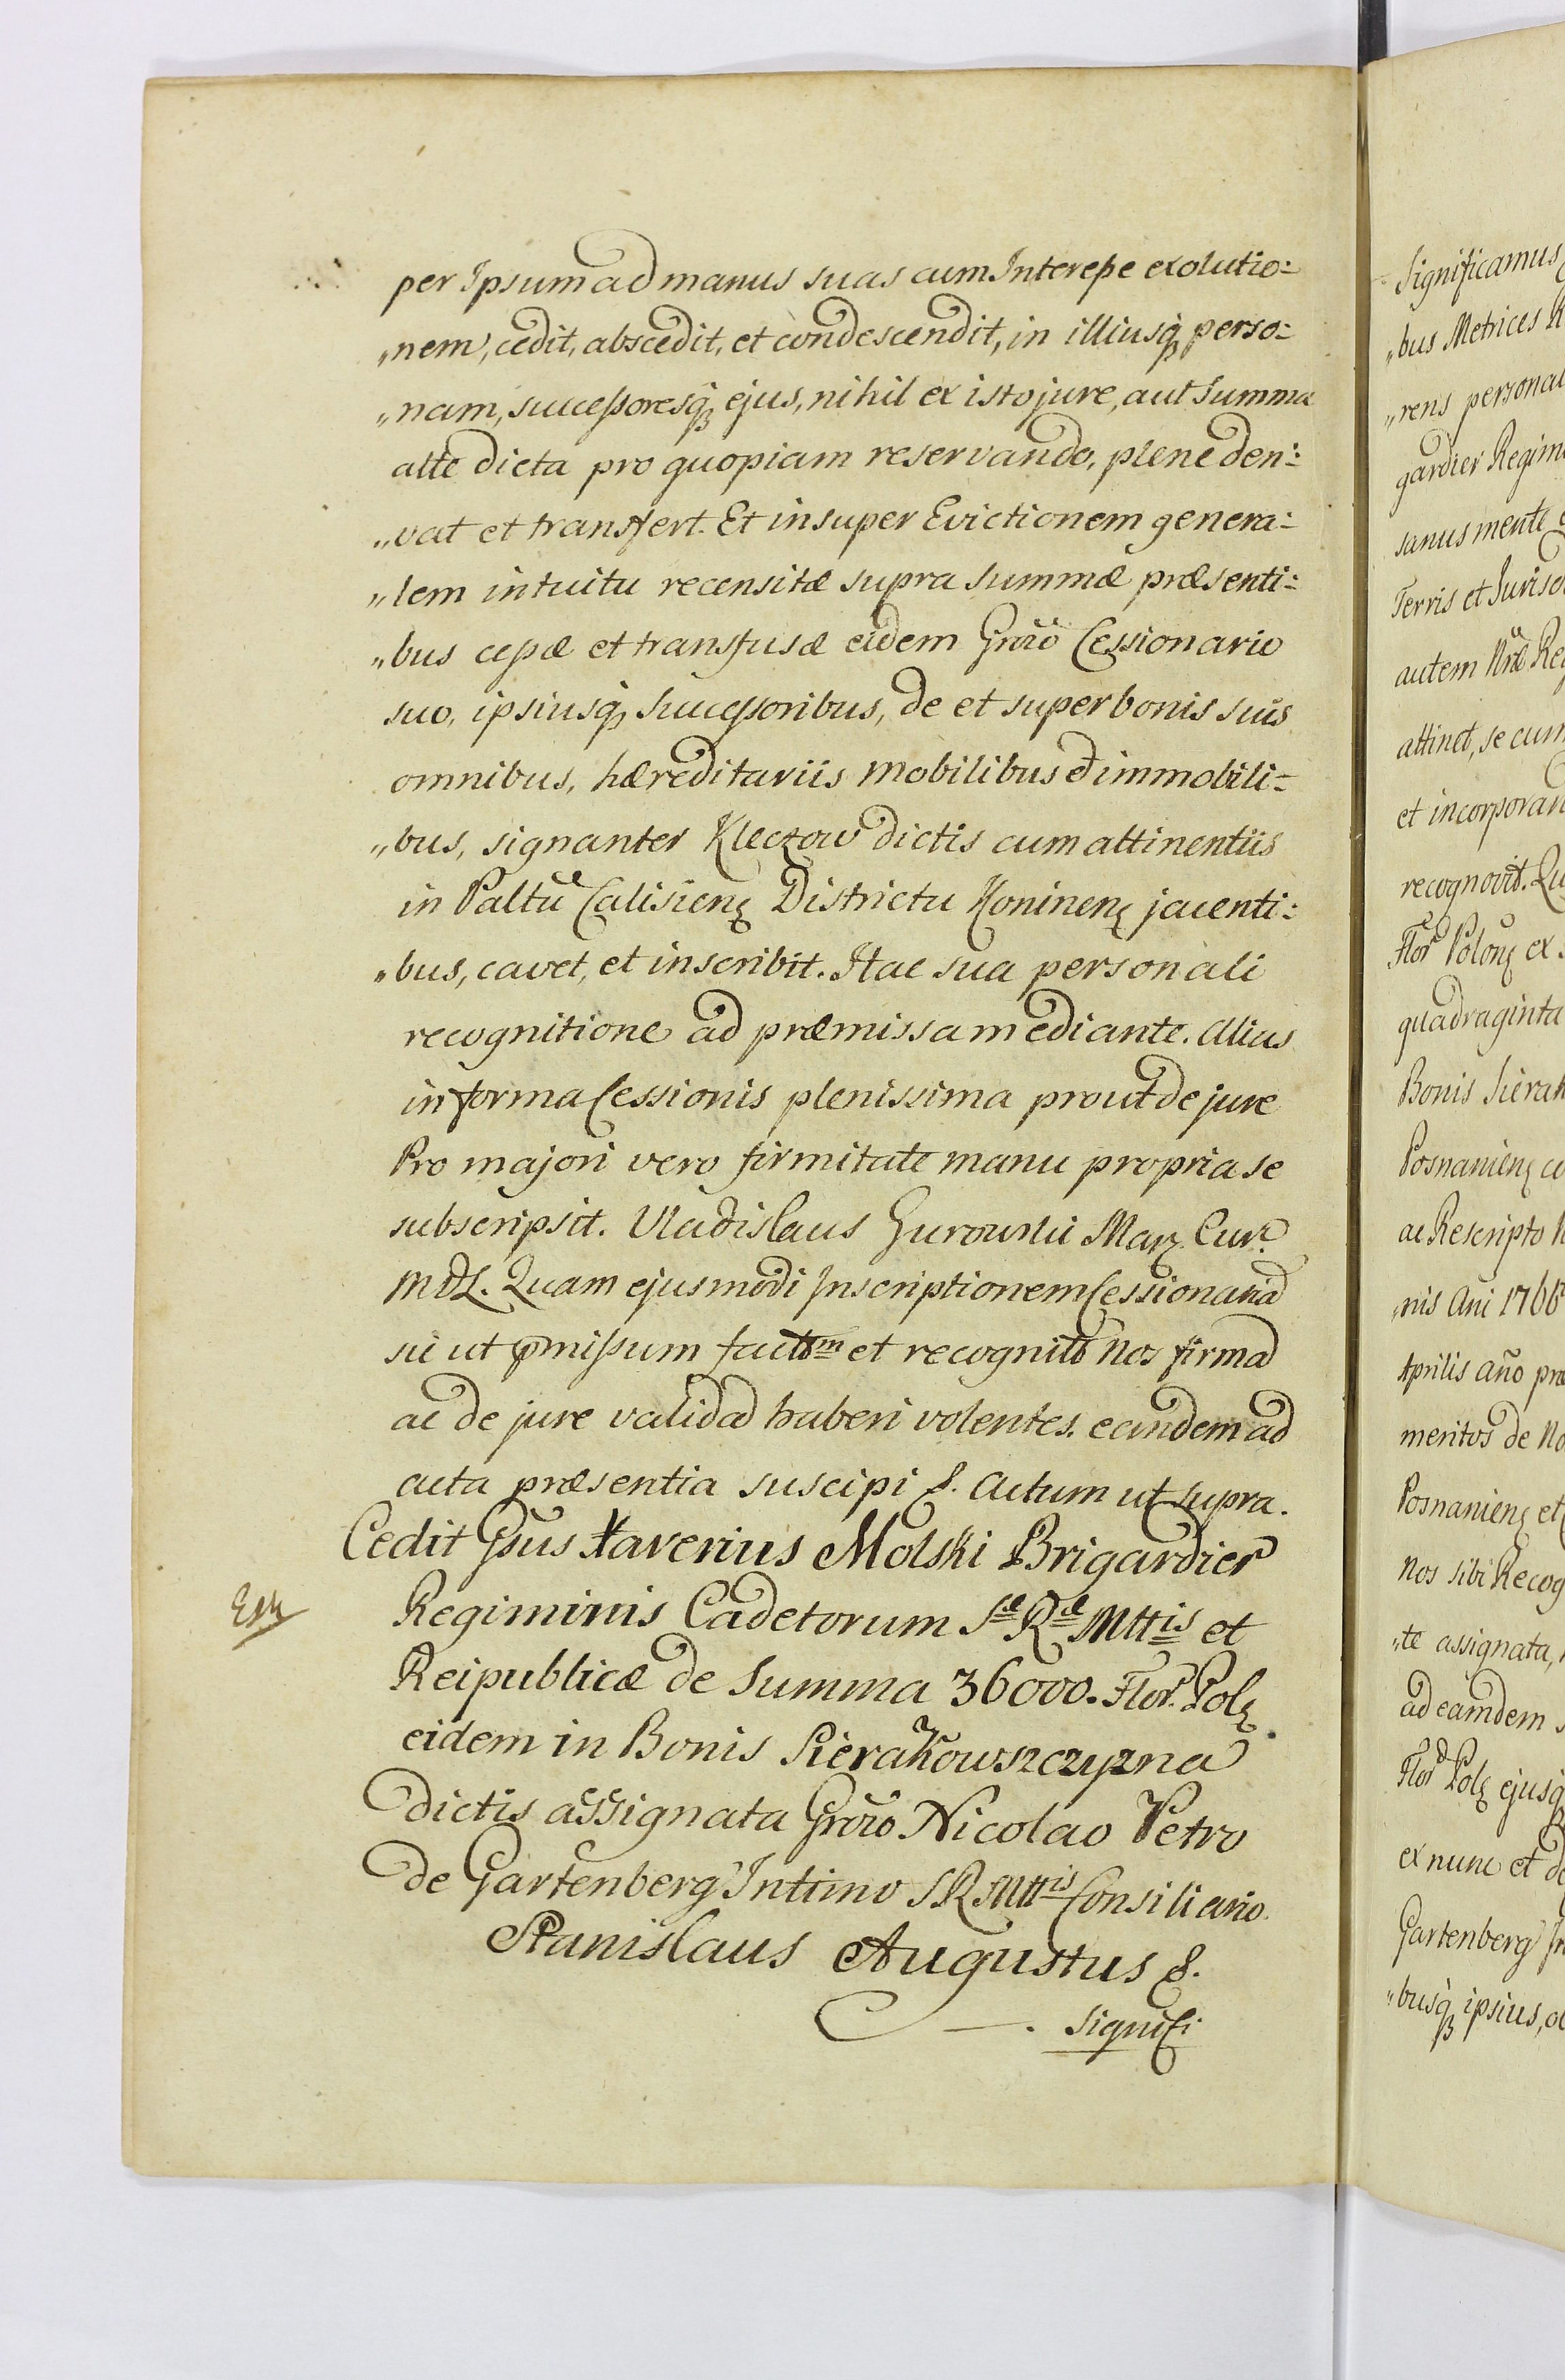 per Ipsum ad manus suas cum Interesse exolutio=
„nem, cedit, abscedit, et condescendit, in illiusq; perso=
„nam, successoresq; ejus, nihil ex isto jure, aut Summa
alte dicta pro quopiam reservando, plene deri=
„vat et transfert. Et insuper Evictionem genera=
„lem intuitu recensitæ supra Summæ præsenti=
„bus cessæ et transfusæ eidem Grōso Cessionario
suo, ipsiusq; Successoribus, de et super bonis suis
omnibus, hæreditariis mobilibus et immobili=
„bus, signanter Kleczow dictis cum attinentiis
in Paltũ Calisien; Districtu Koninen; jacenti=
„bus, cavet, et inscribit. Hac sua personali
recognitione ad præmissa mediante. Alias
in forma Cessionis plenissima prout de jure
Pro majori vero firmitate manu propria se
subscripsit. Vladislaus Gurowski Marz. Cur.
MDL. Quam ejusmodi Inscriptionem Cessionariã
sic ut p̄missum factum et recognitũ Nos firmã
ac de jure validã haberi volentes. eandem ad
acta præsentia suscipi &. Actum ut supra.
Cedit Gsus Xaverius Molski Brigardier
Ex
Regiminis Cadetorum Sæ Ræ Mttis et
Reipublicæ de Summa 36000. Flor. Pol;
eidem in Bonis Sierakowszczyzna
dictis assignata Grōso Nicolao Petro
de Gartenberg Intimo SRMttis Consiliario.
Stanislaus Augustus &.
Signifi
Significamus
„bus Metrices R
„rens personal
gardier Regim
sanus mente
Terris et Juris
autem Nrã Re
attinet, se cum
et incorporan
recognovit. Qu
Flor Polon; ex
quadraginta
Bonis Sierak
Posnanien; co
ac Rescripto N
„nis Añi 1766
Aprilis año præ
meritos de No
Posnanien; et
Nos sibi Recog
„te assignata,
ad eamdem s
Flor Pol; ejusq
ex nunc et de
Gartenberg In
„busq; ipsius,